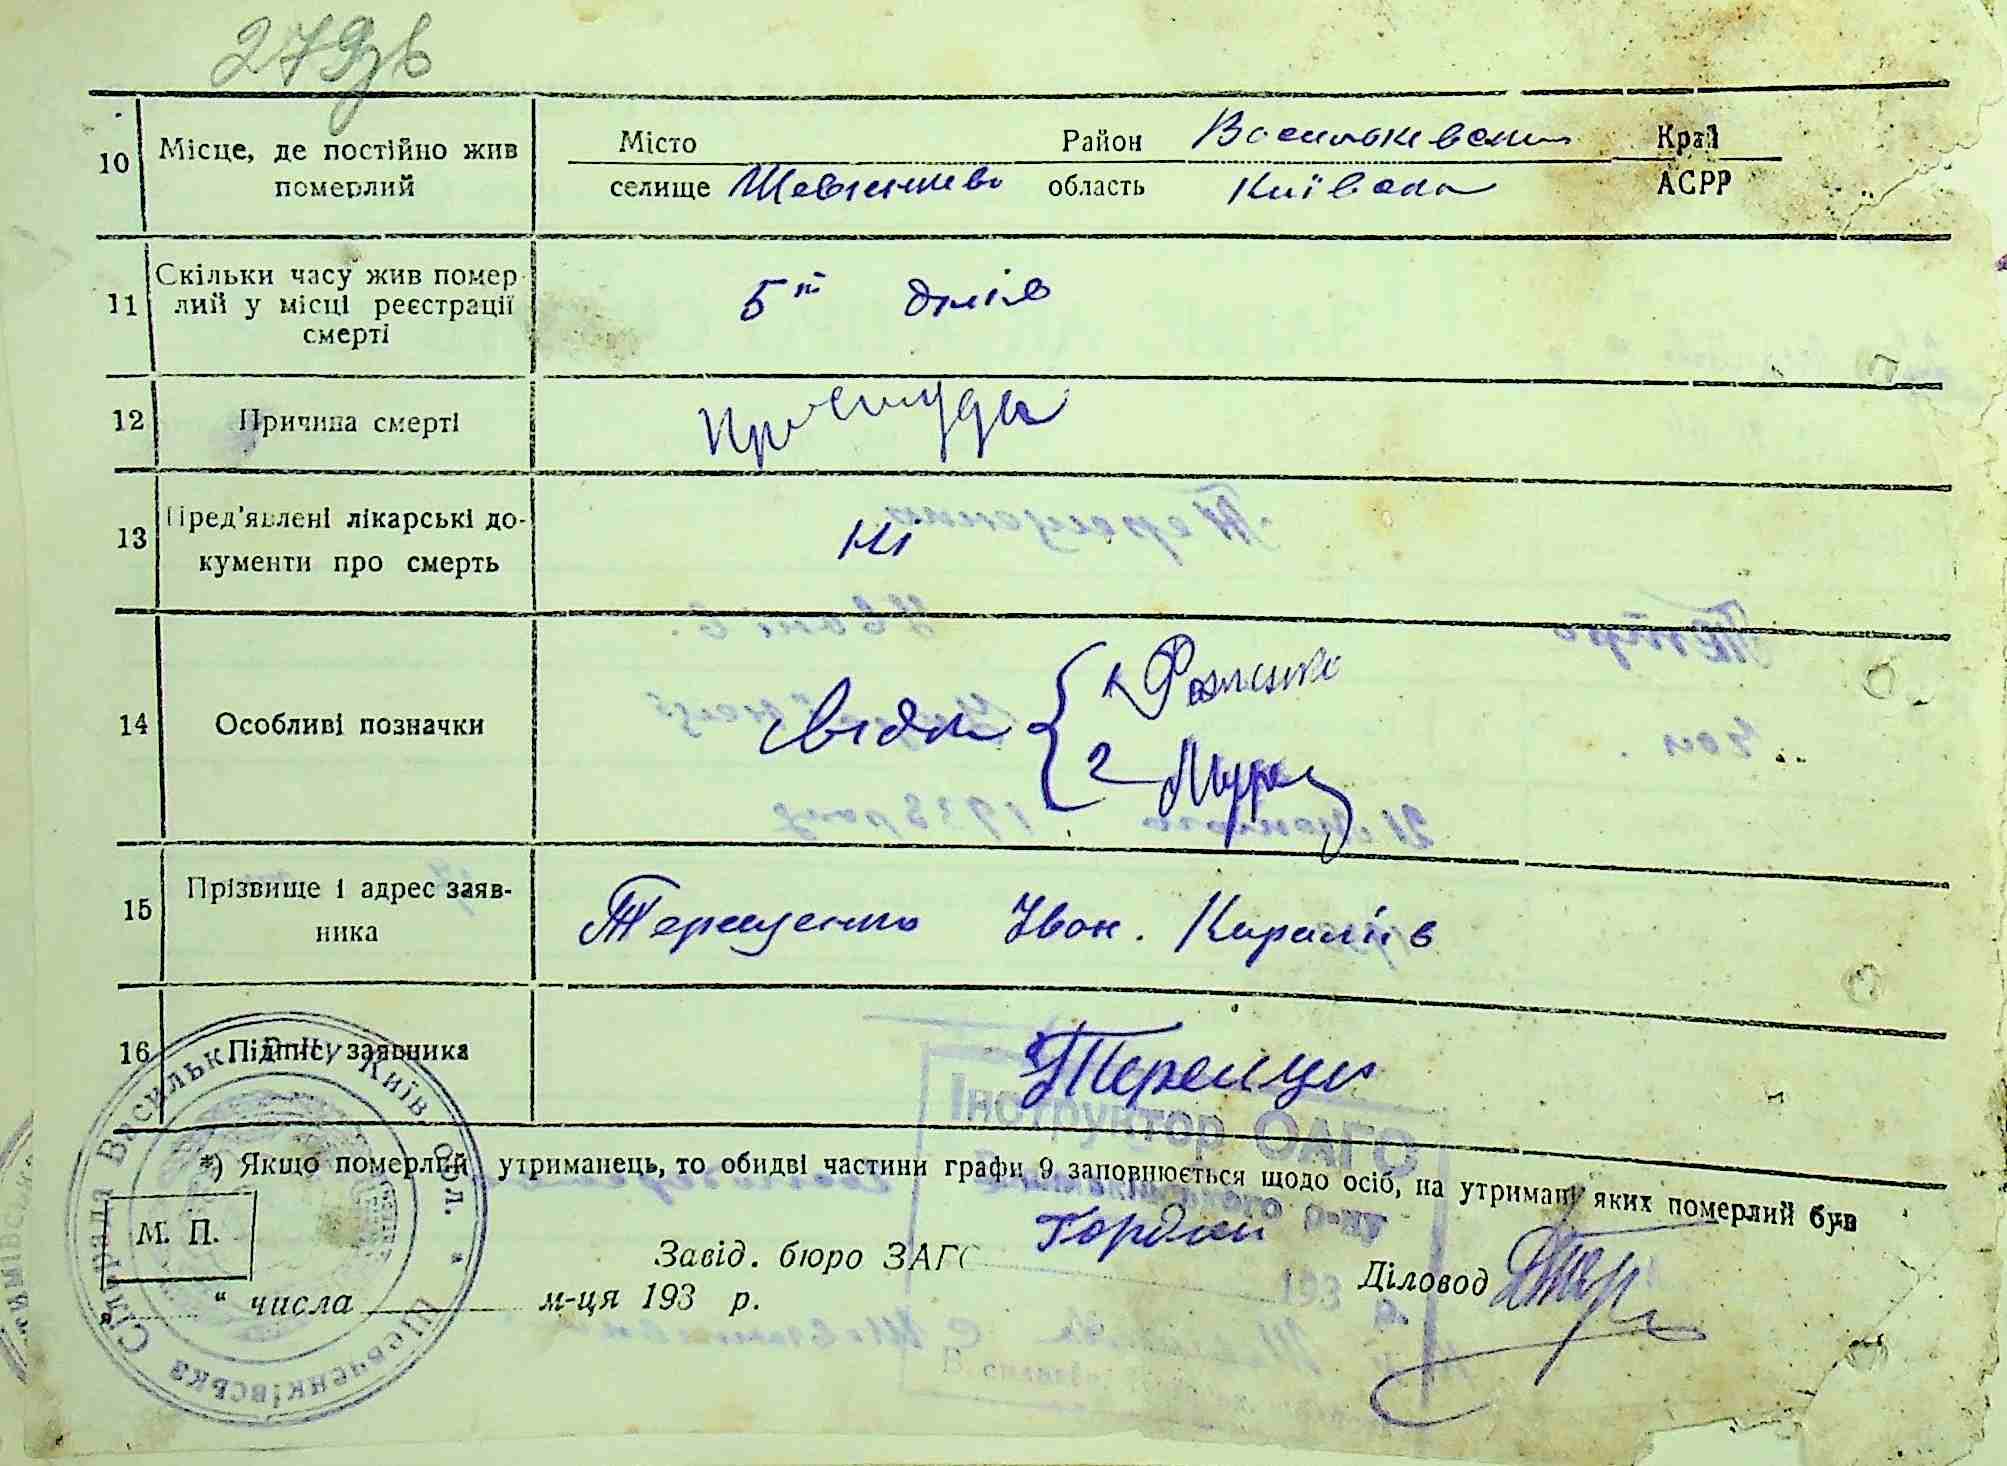 279зв
10 Місце, де постійно жив померлий
Місто Район Васильківськ Край
селище Шевченкова область Київська АСРР
11 Скільки часу жив помер-
лий у місці реєстрації
смерті
5ть днів
12 Причина смерті Простуда
13 Пред'явлені лікарські до-
кументи про смерть
Ні
14 Особливі позначки
Свідки 1
2
15 Прізвище і адрес заяв-
ника
Терещенко Іван. Кирилів
16 Підпис заявника
Терещен
Інструктор ОАГС
*) Якщо померлий утриманець, то обидві частини графи 9 заповнюється щодо осіб, на утримані яких померлий був
М. П.
Завід. бюро ЗАГС Гордієн Діловод
„ “ числа м-ця 193 р.
Шевченківська Сільрада Васильк. Р-ну Київ. Обл.